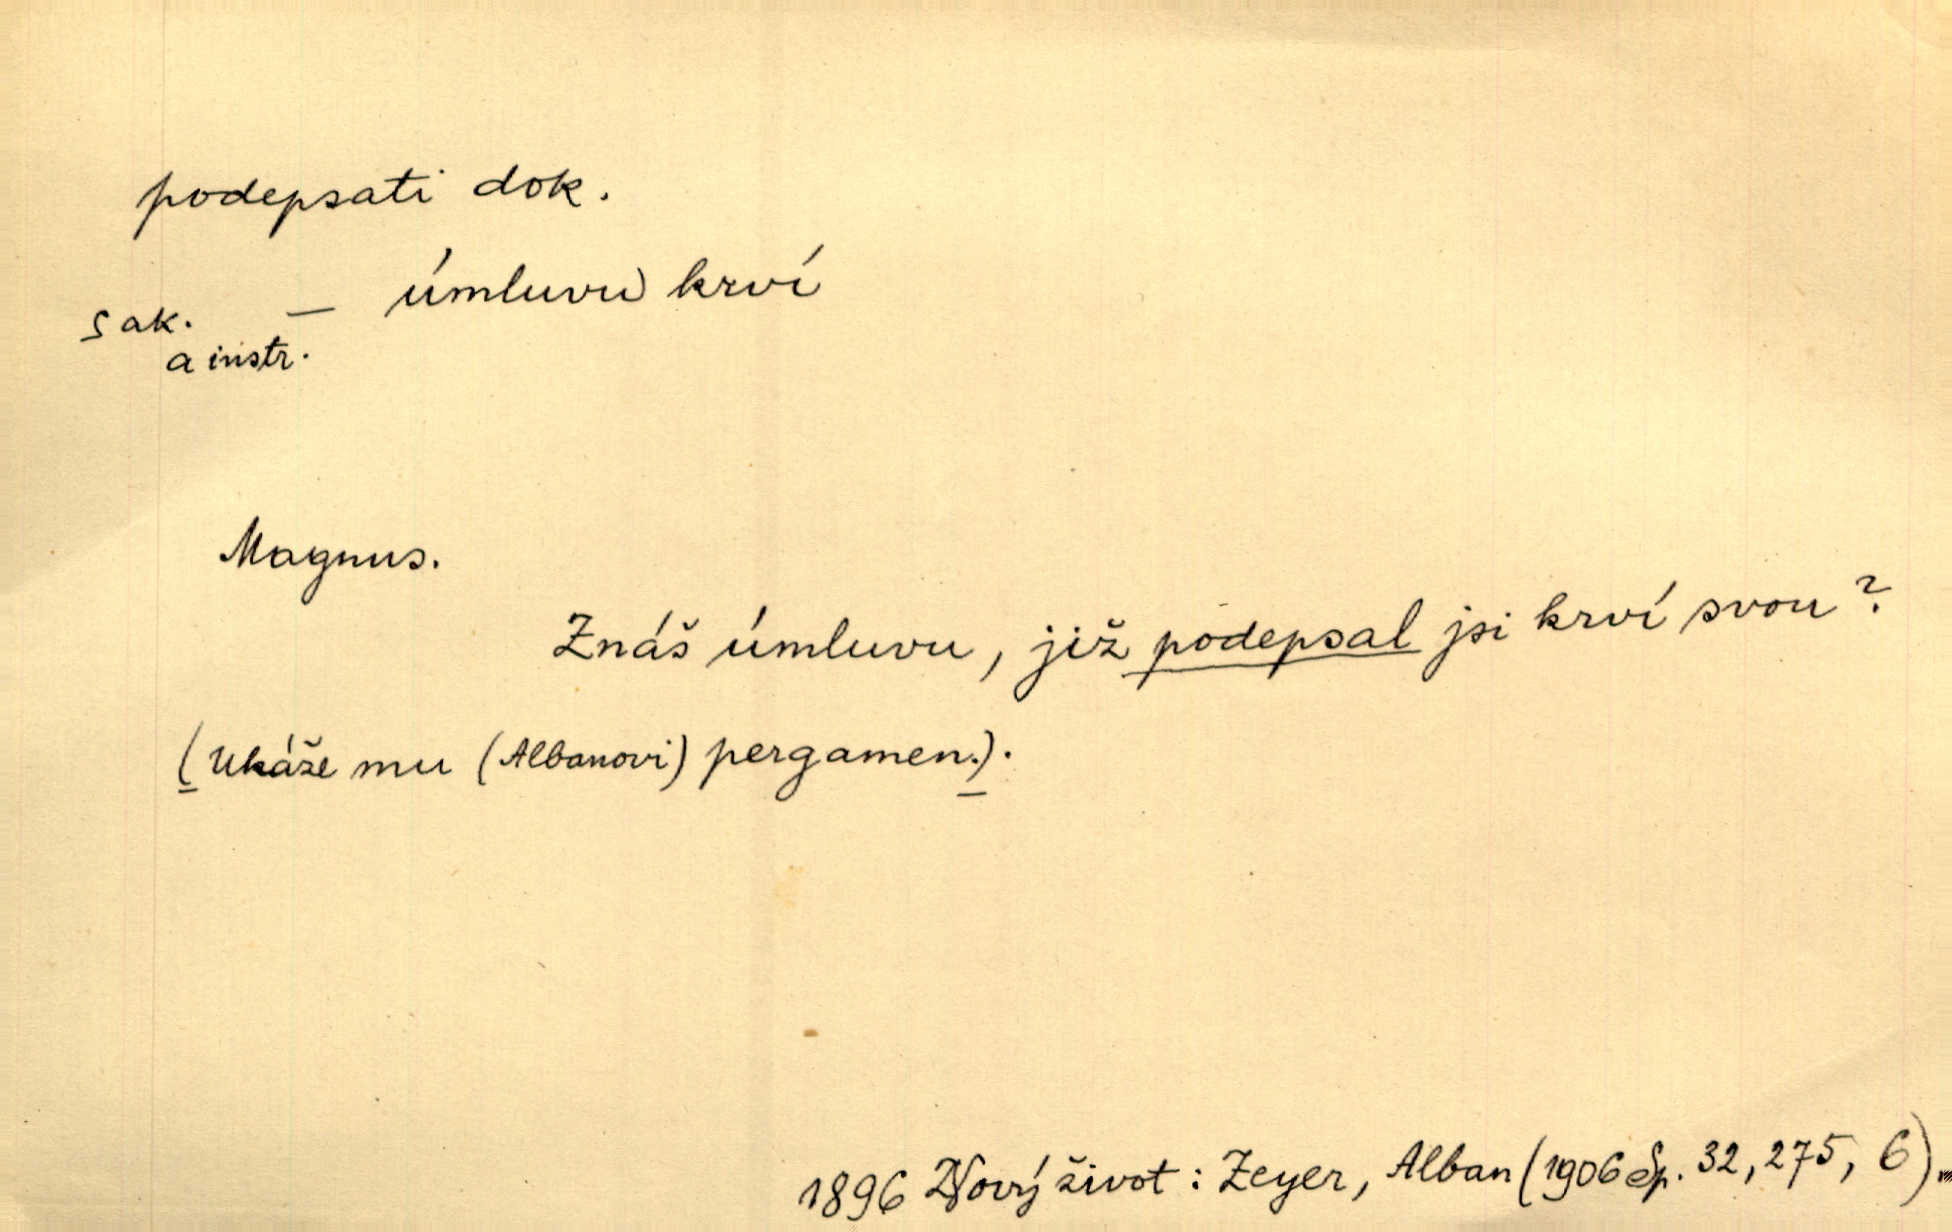 podepsati dok.
s ak. — úmluvu krví
a instr.
Magnus.
Znáš úmluvu, již podepsal jsi krví svou?
(Ukáže mu (Albanovi) pergamen.).
1896 Nový život: Zeyer, Alban (1906 Sp. 32, 275, 6)